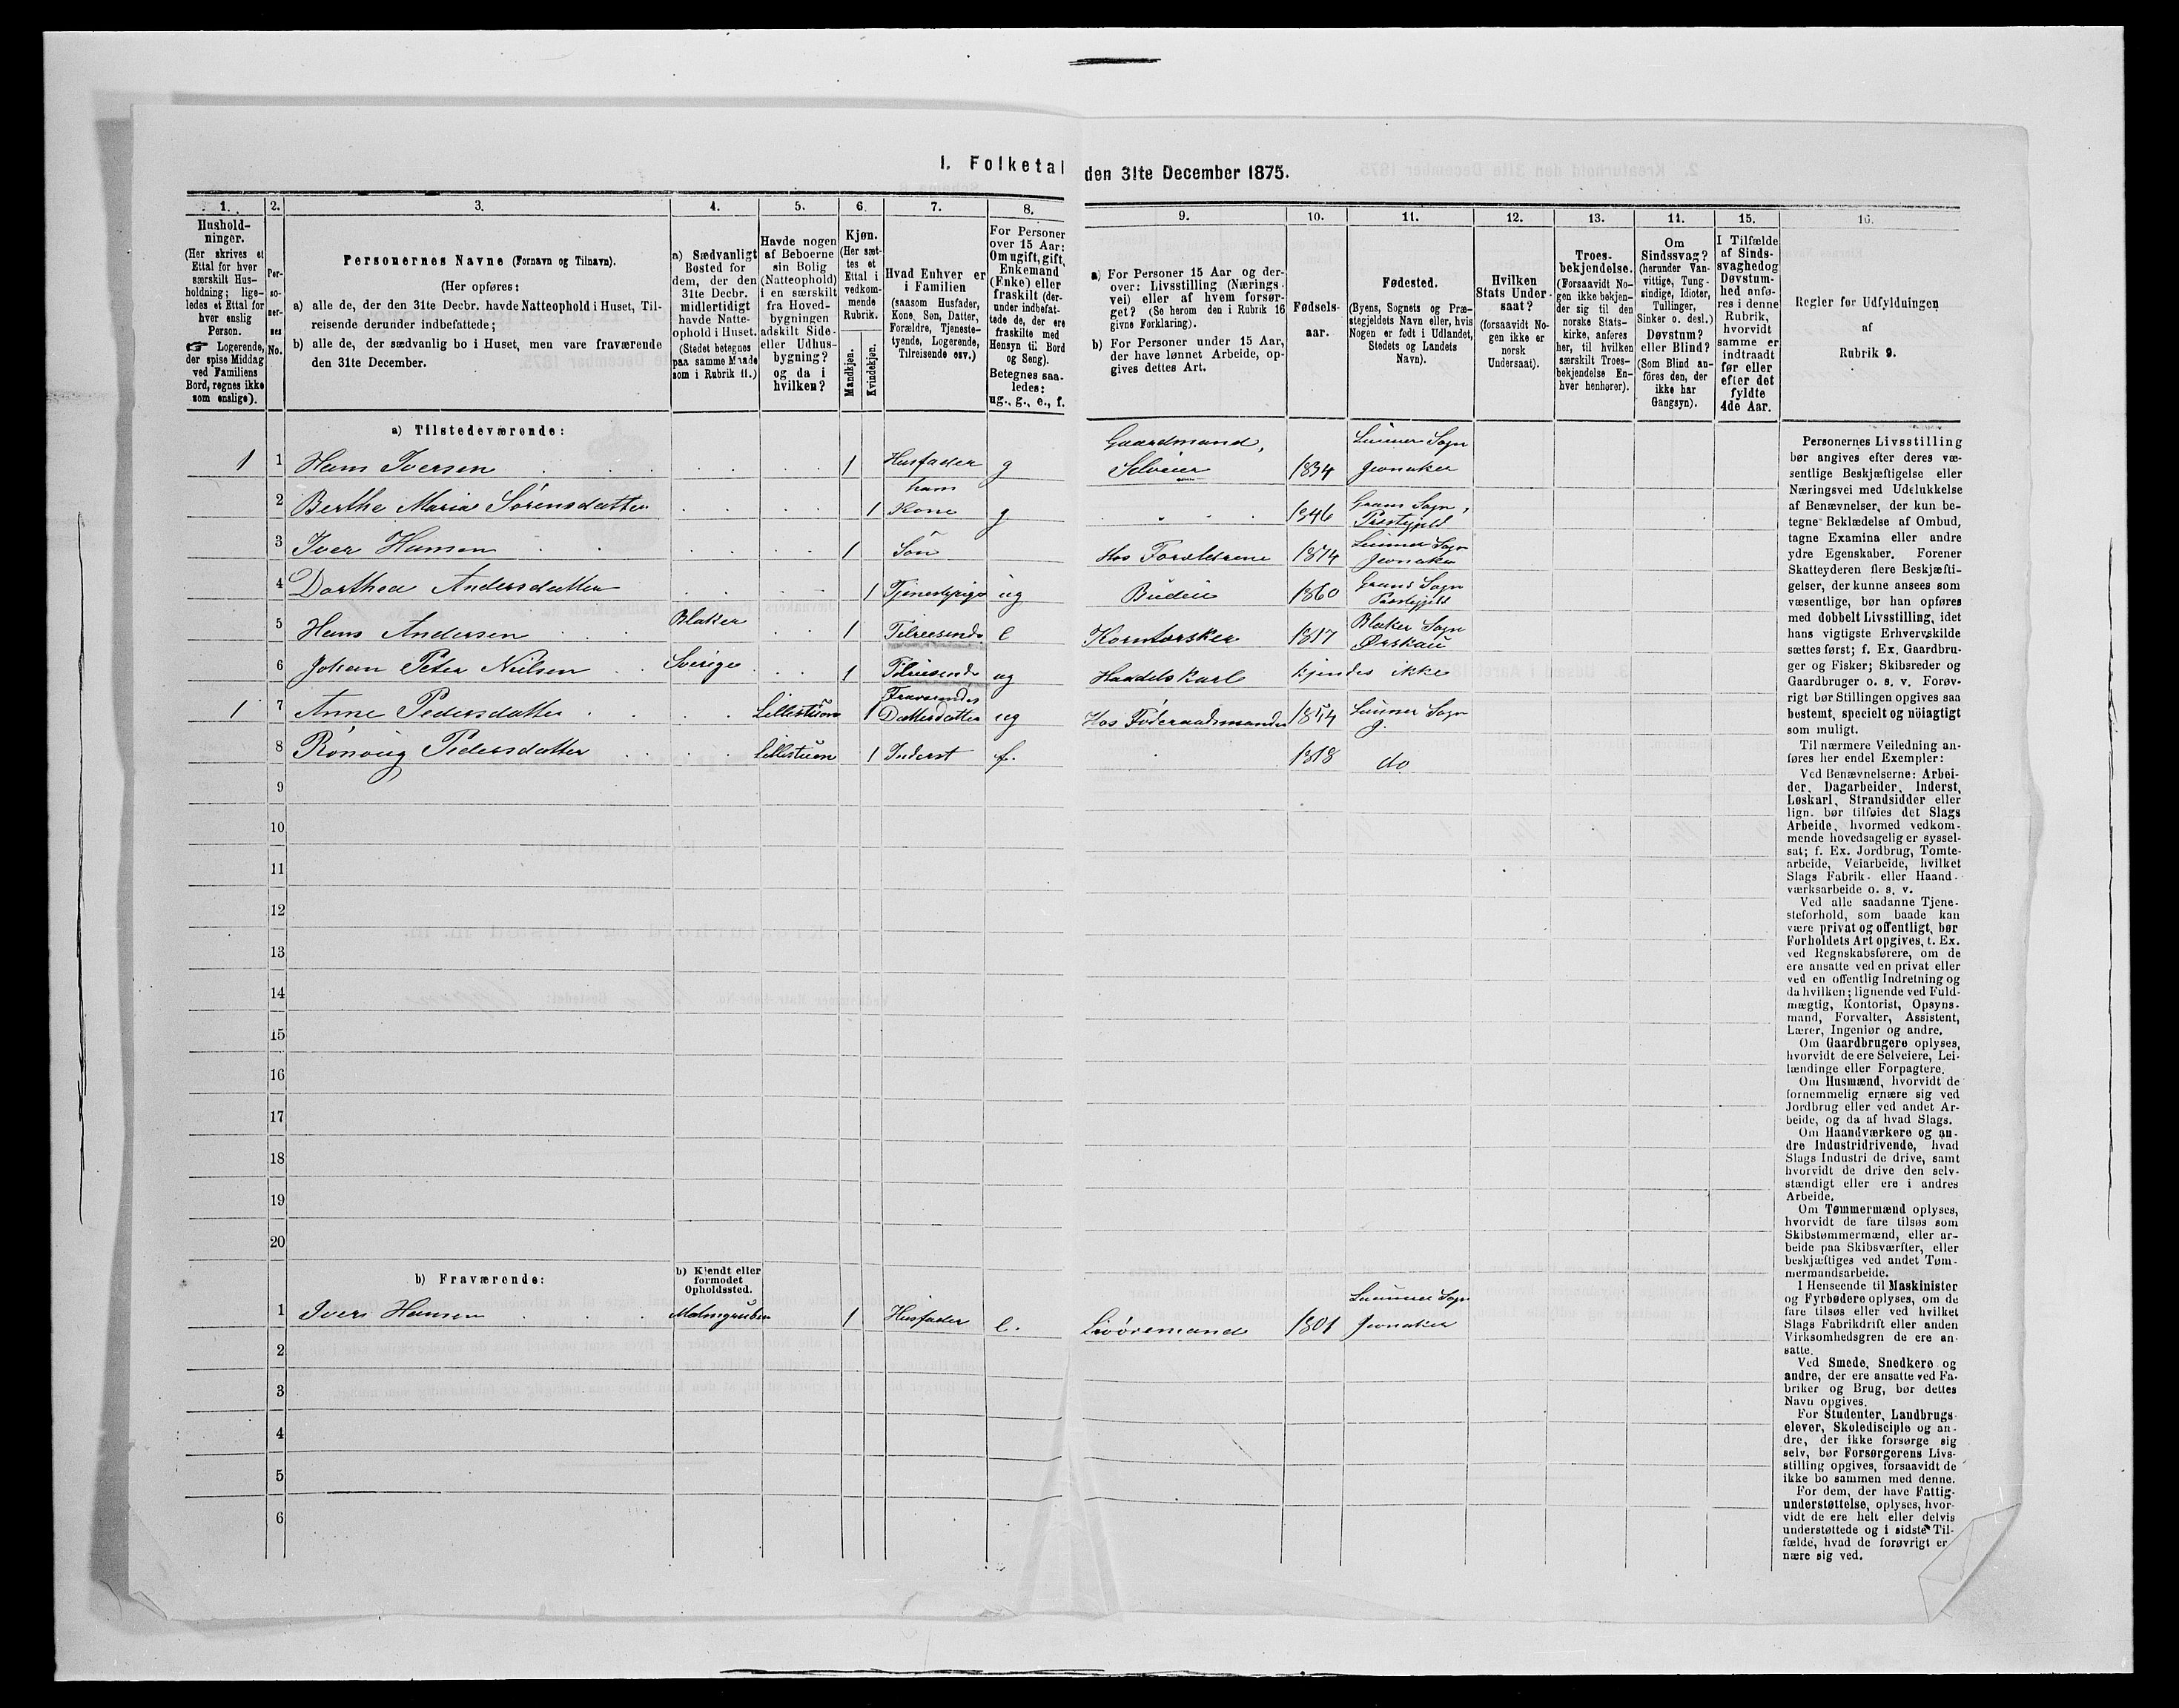 I. Folketal den 31te December 1875.
1.
Hushold-
ninger.
(Her skrives et
Ettal for hver
særskilt Hus-
holdning; lige-
ledes et Ettal for
hver enslig
Person.
☞ Logerende,
der spise Middag
ved Familiens
Bord, regnes ikke
som enslige).
2.
Per-
so-
ner-
nes
No.
3.
Personernes Navne (Fornavn og Tilnavn).
(Her opføres:
a) alle de, der den 31te Decbr. havde Natteophold i Huset, Til-
reisende derunder indbefattede;
b) alle de, der sædvanlig bo i Huset, men vare fraværende
den 31te December.
4.
a) Sædvanligt
Bosted for
dem, der den
31te Decbr.
midlertidigt
havde Natte-
ophold i Huset.
(Stedet betegnes
paa samme Maade
som i Rubrik 11.)
5.
Havde nogen
af Beboerne
sin Bolig
(Natteophold)
i en særskilt
fra Hoved-
bygningen
adskilt Side-
eller Udhus-
bygning?
og da i
hvilken?
6.
Kjøn.
(Her sæt-
tes et
Ettal i
vedkom-
mende
Rubrik.
Mandkjøn.
Kvindekjøn.
7.
Hvad Enhver er
i Familien
(saasom Husfader,
Kone, Søn, Datter,
Forældre, Tjeneste-
tyende, Logerende,
Tilreisende osv.)
8.
For Personer
over 15 Aar:
Om ugift, gift,
Enkemand
(Enke) eller
fraskilt (der-
under indbefat-
tede de, der ere
fraskilte med
Hensyn til Bord
og Seng).
Betegnes saa-
ledes:
ug., g., e., f.
9.
a) For Personer 15 Aar og der-
over: Livsstilling (Nærings-
vei) eller af hvem forsør-
get? (Se herom den i Rubrik 16
givne Forklaring).
b) For Personer under 15 Aar,
der have lønnet Arbeide, op-
gives dettes Art.
10.
Fødsels-
aar.
11.
Fødested.
(Byens, Sognets og Præ-
stegjeldets Navn eller, hvis
Nogen er født i Udlandet,
Stedets og Landets
Navn).
12.
Hvilken
Stats Under-
saat?
(forsaavidt No-
gen ikke er
norsk
Undersaat).
13.
Troes-
bekjendelse.
(Forsaavidt No-
gen ikke bekjen-
der sig til den
norske Stats-
kirke, anføres
her, til hvilken
særskilt Troes-
bekjendelse En-
hver henhører).
14.
Om
Sindssvag?
(herunder Van-
vittige, Tung-
sindige, Idioter,
Tullinger,
Sinker o. desl.)
Døvstum?
eller Blind?
(Som Blind an-
føres den, der
ikke har
Gangsyn).
15.
I Tilfælde
af Sinds-
svaghed og
Døvstum-
hed anfø-
res i denne
Rubrik,
hvorvidt
samme er
indtraadt
før eller
efter det
fyldte
4de Aar.
16.
Regler for Udfyldningen
af
Rubrik 9.
a) Tilstedeværende:
1 1 Hans Iversen 1 Husfader g Gaardmand, Selveier 1834 Lunner Sogn Jevnaker
2 Berthe Maria Sørensdatter 1 hans Kone g 1846 Grans Sogn, Præstegjeld
3 Iver Hansen 1 Søn Hos Forældrene 1874 Lunner Sogn Jevnaker
4 Dorthea Andersdatter 1 Tjenestepige ug Budeie 1860 Grans Sogn Præstegjeld
5 Hans Andersen Blaker 1 Tilreisende e Korntærsker 1817 Blaker Sogn Ørskau
6 Johan Peter Nielsen Sverige 1 Tilreisende ug Handelskarl kjendes ikke
1 7 Anne Pedersdatter Lillestuen 1 Fraværendes Datterdatter ug Hos Føderaadsmanden 1854 Lunner Sogn J.
8 Rønnoug Pedersdatter Lillestuen 1 Inderst f. 1818 do
9
10
11
12
13
14
15
16
17
18
19
20
b) Fraværende:
b) Kjendt eller
formodet
Opholdssted.
1 Iver Hansen Malmgruben 1 Husfader e. Livøremand 1801 Lunner Sogn Jevnaker
2
3
4
5
6
Personernes Livsstilling
bør angives efter deres væ-
sentlige Beskjæftigelse eller
Næringsvei med Udelukkelse
af Benævnelser, der kun be-
tegne Beklædelse af Ombud,
tagne Examina eller andre
ydre Egenskaber. Forener
Skatteyderen flere Beskjæfti-
gelser, der kunne ansees som
væsentlige, bør han opføres
med dobbelt Livsstilling, idet
hans vigtigste Erhvervskilde
sættes først; f. Ex. Gaardbru-
ger og Fisker; Skibsreder og
Gaardbruger o. s. v. Forøv-
rigt bør Stillingen opgives saa
bestemt, specielt og nöiagtigt
som muligt.
Til nærmere Veiledning an-
føres her endel Exempler:
Ved Benævnelserne: Arbei-
der, Dagarbeider, Inderst,
Løskarl, Strandsidder eller
lign. bør tilføies det Slags
Arbeide, hvormed vedkom-
mende hovedsagelig er syssel-
sat; f. Ex. Jordbrug, Tomte-
arbeide, Veiarbeide, hvilket
Slags Fabrik- eller Haand-
værksarbeide o. s. v.
Ved alle saadanne Tjene-
steforhold, som baade kan
være privat og offentligt, bør
Forholdets Art opgives, t. Ex.
ved Regnskabsførere, om de
ere ansatte ved en privat eller
ved en offentlig Indretning og
da hvilken; lignende ved Fuld-
mægtig, Kontorist, Opsyns-
mand, Forvalter, Assistent,
Lærer, Ingeniør og andre.
Om Gaardbrugere oplyses,
hvorvidt de ere Selveiere, Lei-
lændinge eller Forpagtere.
Om Husmænd, hvorvidt de
fornemmelig ernære sig ved
Jordbrug eller ved andet Ar-
beide, og da af hvad Slags.
Om Haandværkere og an-
dre Industridrivende, hvad
Slags Industri de drive, samt
hvorvidt de drive den selv-
stændigt eller ere i andres
Arbeide.
Om Tømmermænd oplyses,
hvorvidt de fare tilsøs som
Skibstømmermænd, eller ar-
beide paa Skibsværfter, eller
beskjæftiges ved andet Tøm-
mermandsarbeide.
I Henseende til Maskinister
og Fyrbødere oplyses, om de
fare tilsøs eller ved hvilket
Slags Fabrikdrift eller anden
Virksomhedsgren de ere an-
satte.
Ved Smede, Snedkere og
andre, der ere ansatte ved Fa-
briker og Brug, bør dettes
Navn opgives.
For Studenter, Landbrugs-
elever, Skoledisciple og an-
dre, der ikke forsørge sig
selv, bør Forsørgerens Livs-
stilling opgives, forsaavidt de
ikke bo sammen med denne.
For dem, der have Fattig-
understøttelse, oplyses, hvor-
vidt de ere helt eller delvis
understøttede og i sidste Til-
fælde, hvad de forøvrigt er-
nære sig ved.